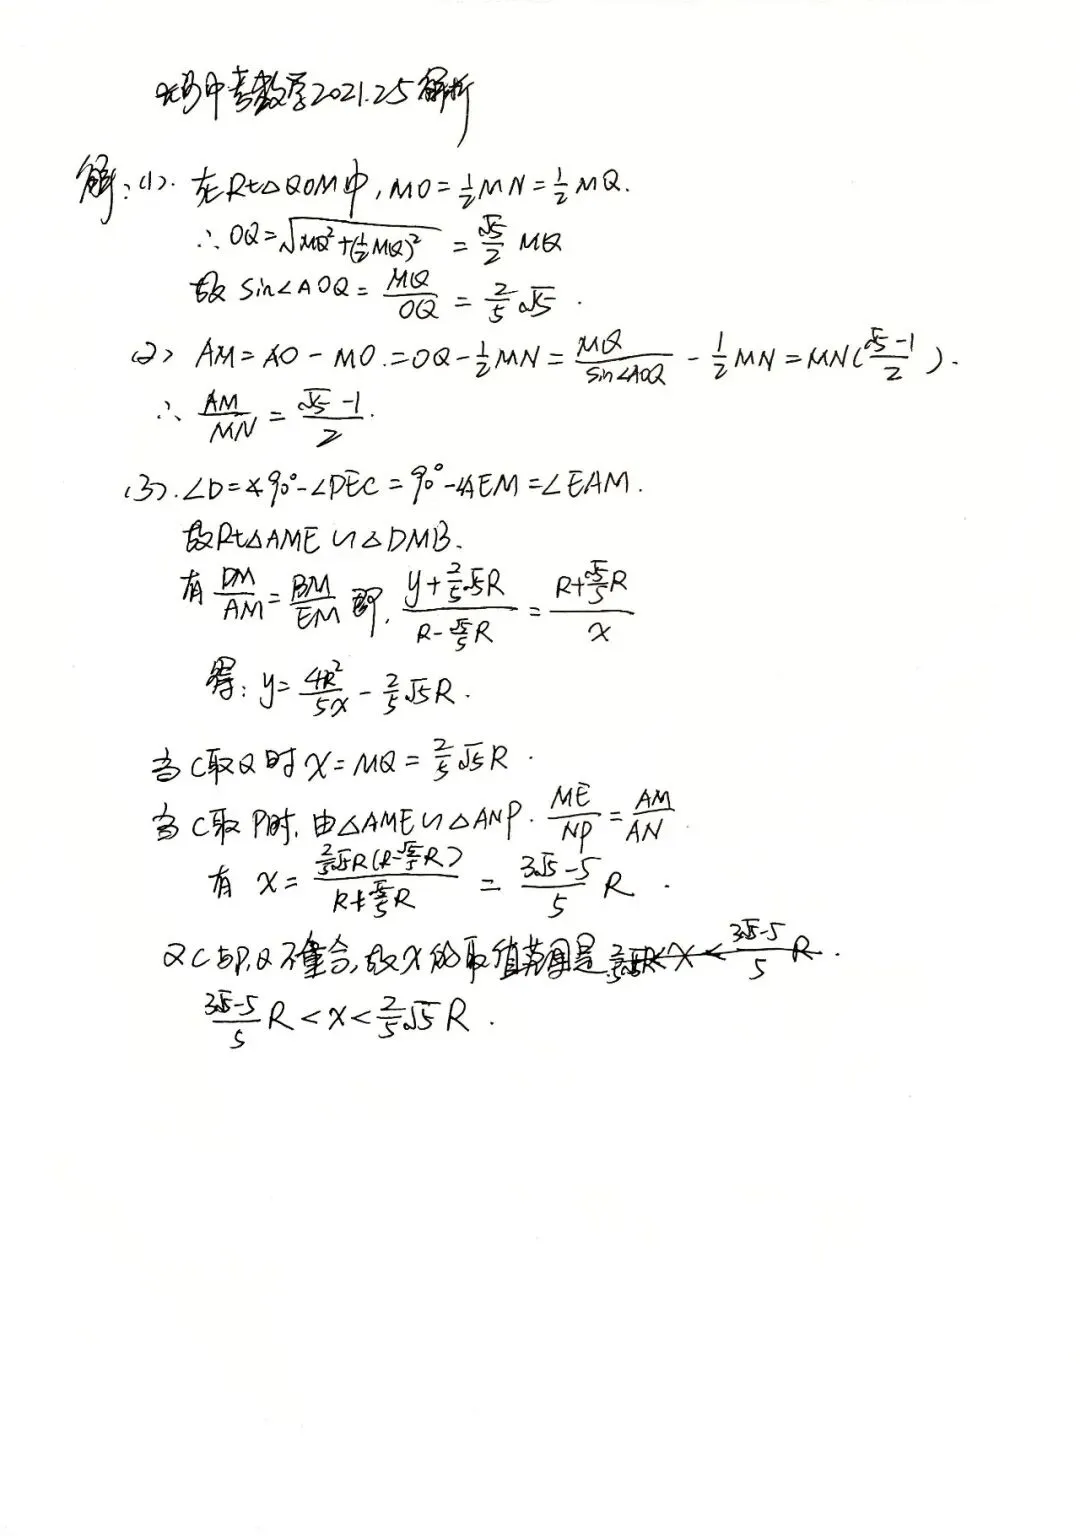 中考数学2021.25解析
解:(1). 在Rt△QOM中, MO=½MN=½MQ.
∴ OQ=√(MQ²+(½MQ)²) = √5/2 MQ
故 sin∠AOQ = MQ/OQ = 2/5 √5 .
(2) AM=AO-MO.=OQ-½MN= MQ/sin∠AOQ - ½MN=MN(√5-1/2).
∴ AM/MN = √5-1/2.
(3). ∠D=90°-∠DEC=90°-∠AEM=∠EAM.
故Rt△AME∽△DMB.
有 DM/AM = BM/EM 即, y+2/5√5R / R-√5/5R = R+√5/5R / x
得: y= 4R²/5x - 2/5√5R .
当C取Q时 x=MQ=2/5√5R .
当C取P时, 由△AME∽△ANP. ME/NP = AM/AN
有 x= 2/5√5R(R-√5/5R) / R+√5/5R = 3√5-5/5 R .
又C与P,Q不重合,故x的取值范围是 2/5√5R<x<3√5-5/5 R .
3√5-5/5 R<x<2/5√5R .